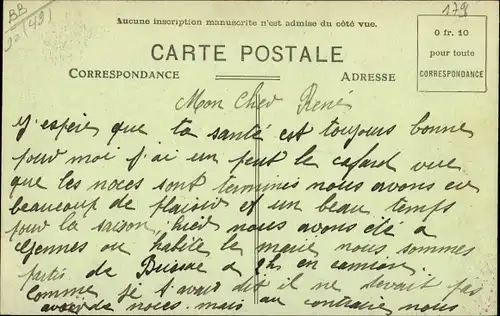 BB
179
Aucune inscription manuscrite n'est admise du côté vue.
CARTE POSTALE
CORRESPONDANCE
ADRESSE
0 fr. 10
pour toute
CORRESPONDANCE
Mon Cher René
J'espère que ta santé est toujours bonne
pour moi j'ai un peut le cafard vue
que les noces sont terminés nous avons eu
beaucoup de plaisir et un beau temps
pour la saison, hier nous avons été a
Gennes ou habite le marié nous sommes
partis de Brissac a 2h en camion
Comme je t'avais dit il ne devait pas
avoir de noces mais au contraire nous